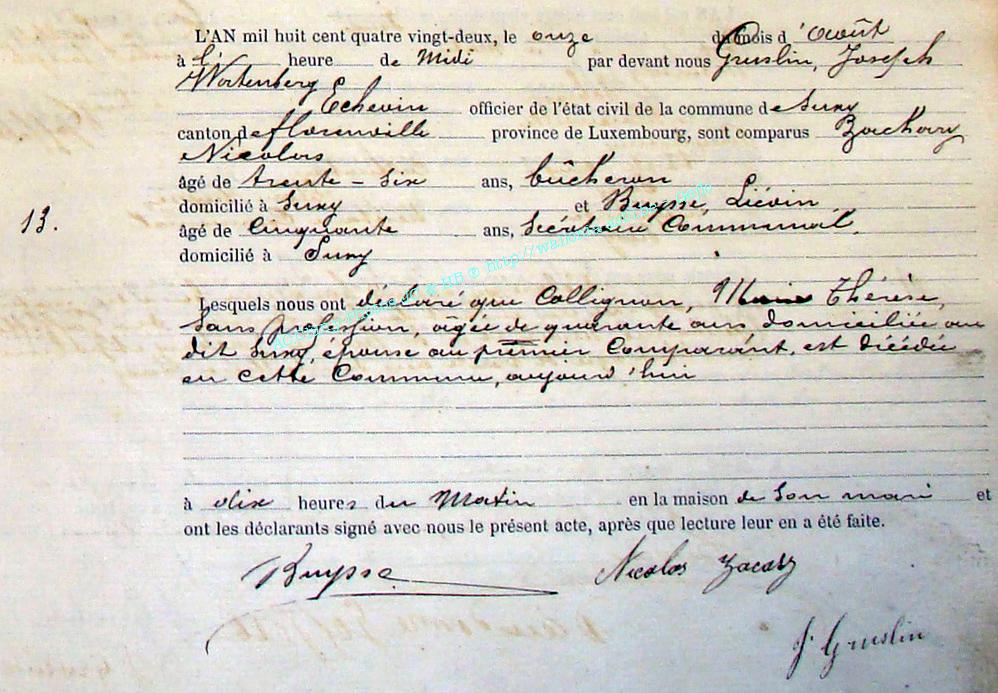 L'AN mil huit cent quatre vingt-deux, le onze du mois d'Août
à l' heure de Midi par devant nous Gruslin, Joseph
Echevin officier de l'état civil de la commune de Suxy
canton de florenville province de Luxembourg, sont comparus Zachary
Nicolas
âgé de trente-six ans, bûcheron
domicilié à Suxy et Buysse, Liévin
13.
âgé de Cinquante ans, Secrétaire Communal.
domicilié à Suxy
Lesquels nous ont déclaré que Collignon, Marie Thérèse,
sans profession, âgée de quarante ans, domiciliée au
dit Suxy, épouse au premier Comparant, est décédée
en cette Commune, aujourd'hui
à dix heures du Matin en la maison de son mari et
ont les déclarants signé avec nous le présent acte, après que lecture leur en a été faite.
Buysse Nicolas
J Gruslin